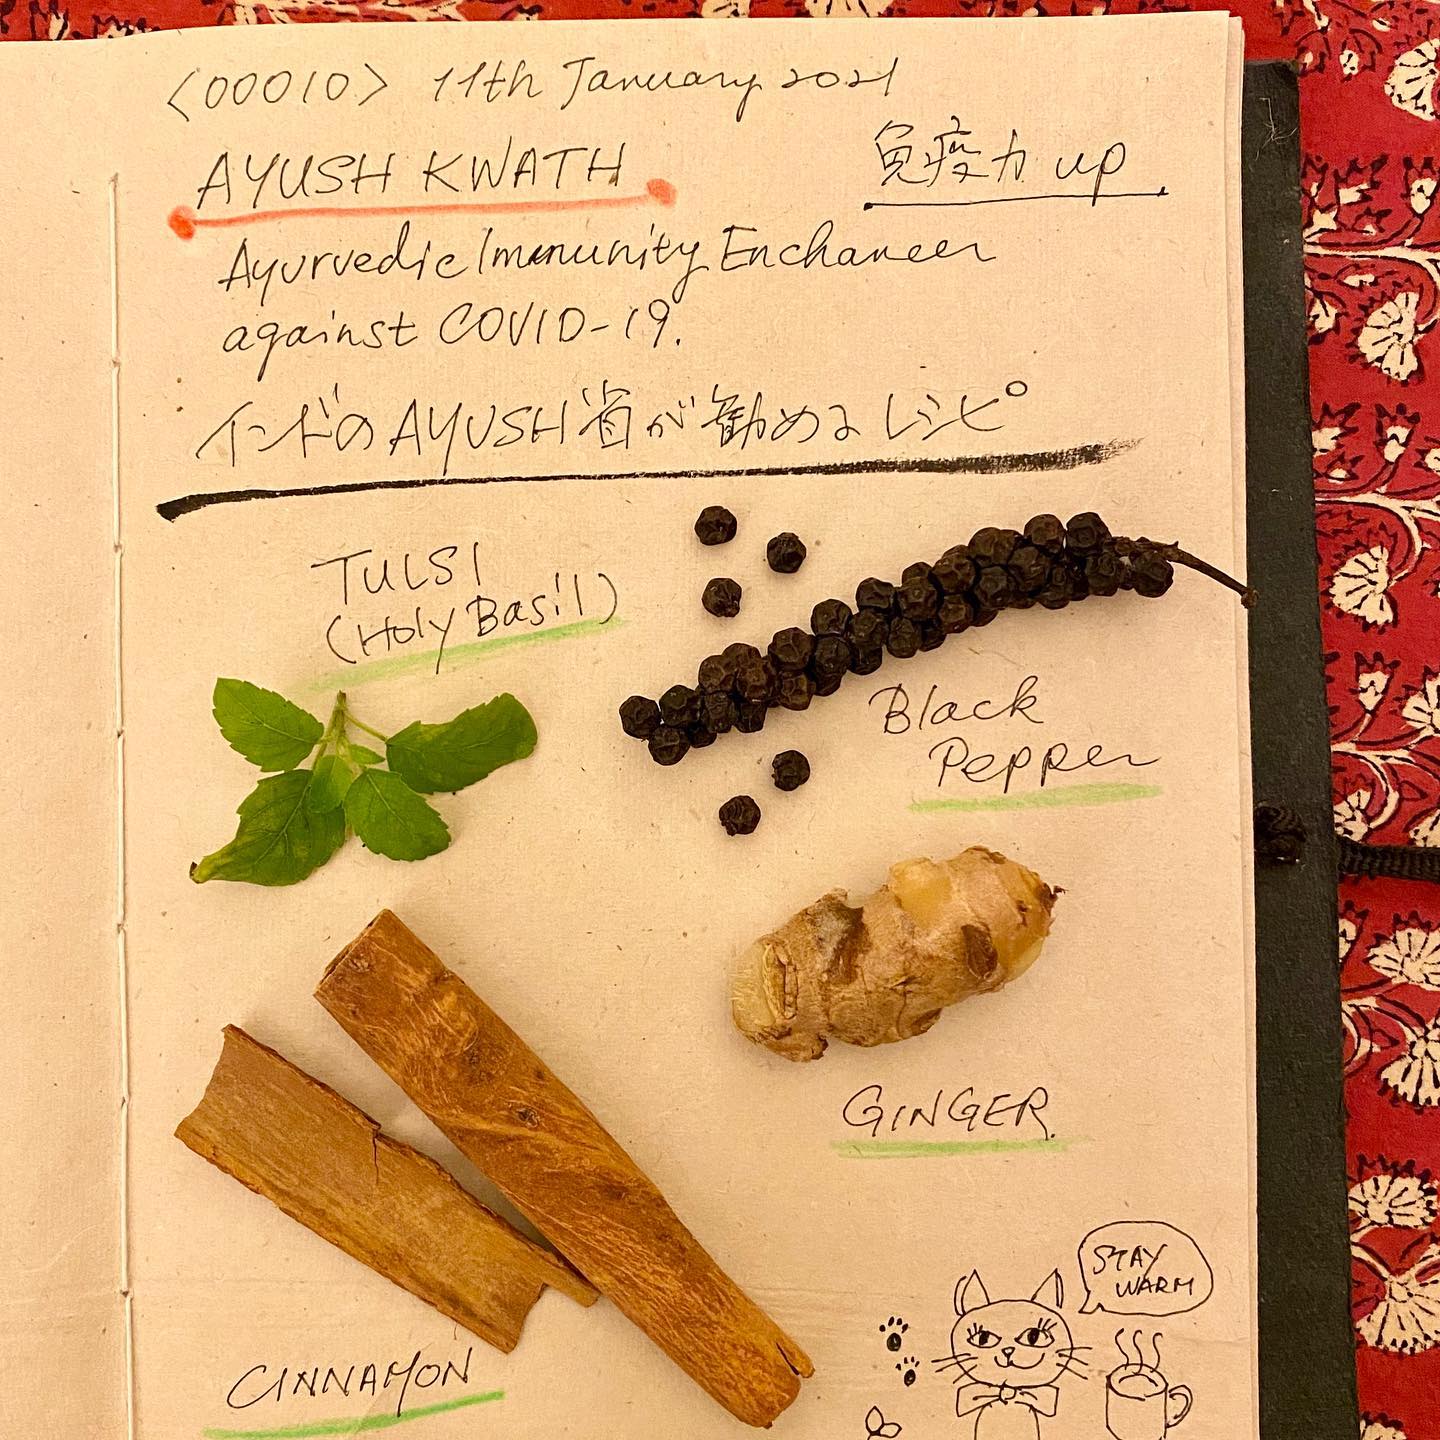 <00010> 11th January 2021
AYUSH KWATH
免疫力 up
Ayurvedic Immunity Enchancer
against COVID-19.
インドのAYUSH省が勧めるレシピ
TULSI
(Holy Basil)
Black
Pepper
GINGER.
CINNAMON
STAY
WARM